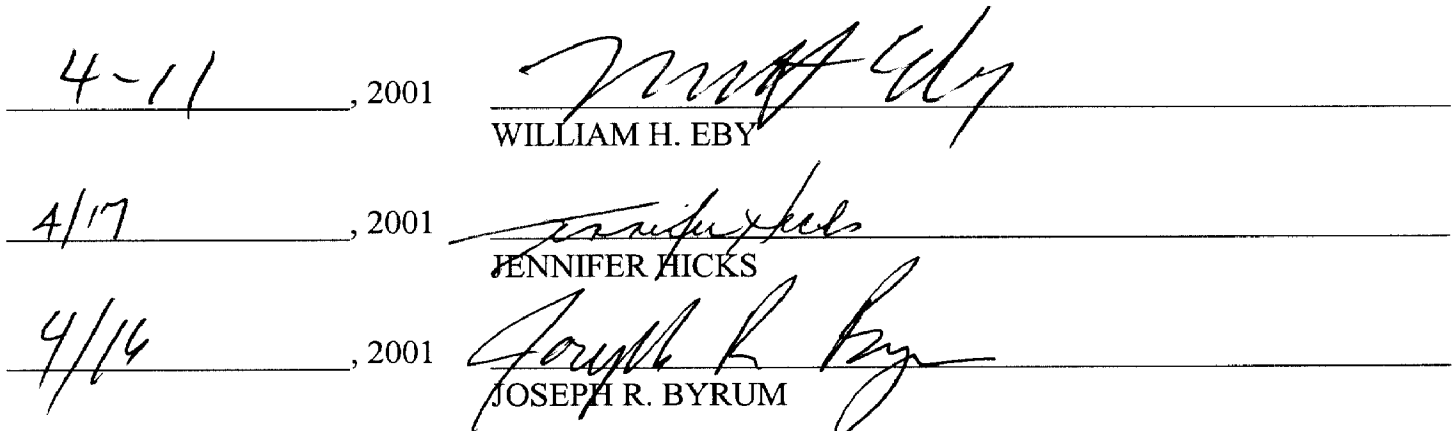 4-11, 2001
WILLIAM H. EBY
4/17, 2001 Jennifer Hicks
JENNIFER HICKS
4/16, 2001 Joseph R Byr
JOSEPH R. BYRUM